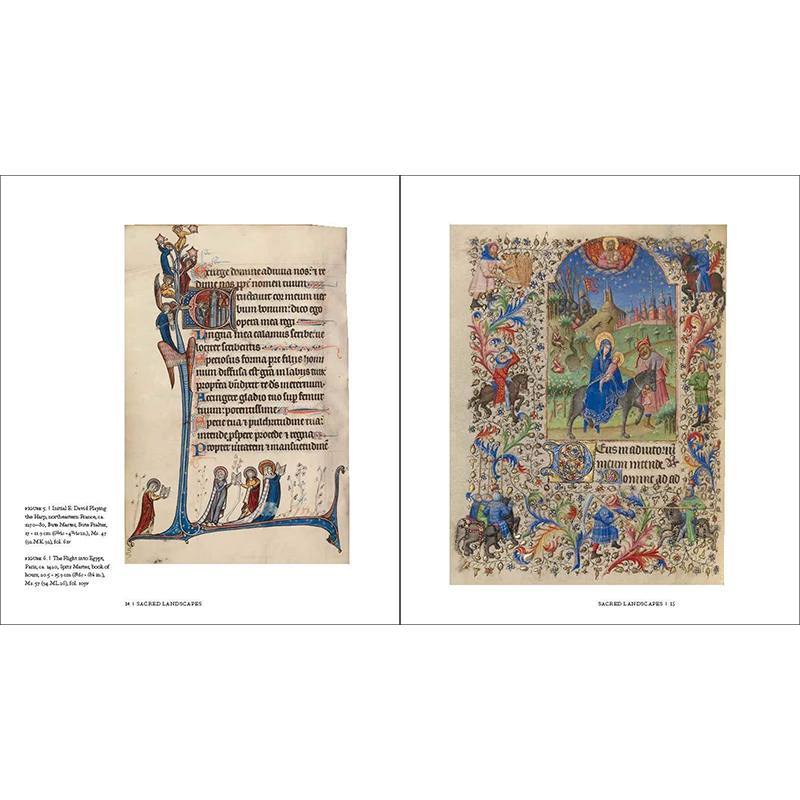 Exurge domine adiuva nos: ⁊ re
dime nos ppt nomen tuum
Eructavit cor meum ver
bum bonum: dico ego
opera mea regi
Lingua mea calamus scribe: ve
lociter scribentis
Speciosus forma pre filiis homi
num diffusa est gra in labiis tuis
propterea benedixit te ds in eternum
Accingere gladio tuo sup femur
tuum: potentissime
Specie tua ⁊ pulchritudine tua:
intende pspere procede ⁊ regna
Propter veritatem ⁊ mansuetudine
FIGURE 5. | Initial E: David Playing
the Harp, northeastern France, ca.
1270–80, Bute Master, Bute Psalter,
17 × 11.9 cm in.), Ms.
fol.
FIGURE 6. | The Flight into Egypt,
Paris, ca. 1420, Spitz Master, book of
hours, 20.5 × cm in.),
Ms. 57 (94.ML.26), fol. 103v
14 | SACRED LANDSCAPES
Deus in adiutoriu
meum intende.
Domine ad ad
SACRED LANDSCAPES | 15